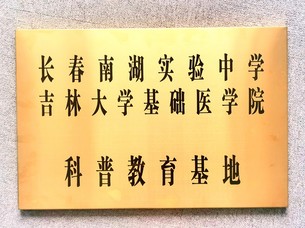 长春南湖实验中学
吉林大学基础医学院
科普教育基地